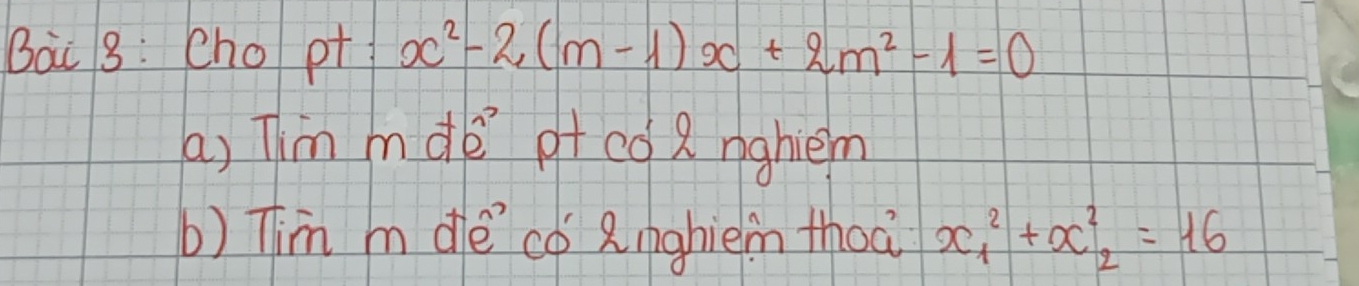 Bài 3: Cho pt: x² - 2(m - 1)x + 2m² - 1 = 0
a) Tìm m để pt có 2 nghiệm
b) Tìm m để có 2 nghiệm thoả: x₁² + x₂² = 16